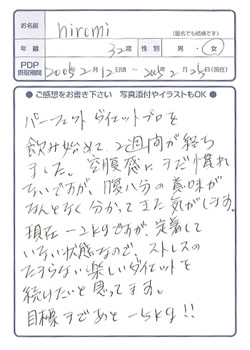 お名前 hiromi (匿名でも結構です)
年 齢 32歳 性 別 男・女
PDP 摂取期間 2006年2月12日〜2006年2月25日
●ご感想をお書き下さい 写真添付やイラストもOK●
パーフェクトダイエットプロを
飲み始めて2週間が経ち
ました。空腹感にまだ慣れ
ないですが、腹八分の意味が
なんとなく分かってきた気がします。
現在-2kgですが、定着して
いない状態なので、ストレスの
たまらない楽しいダイエットを
続けたいと思ってます。
目標まであと-5kg!!